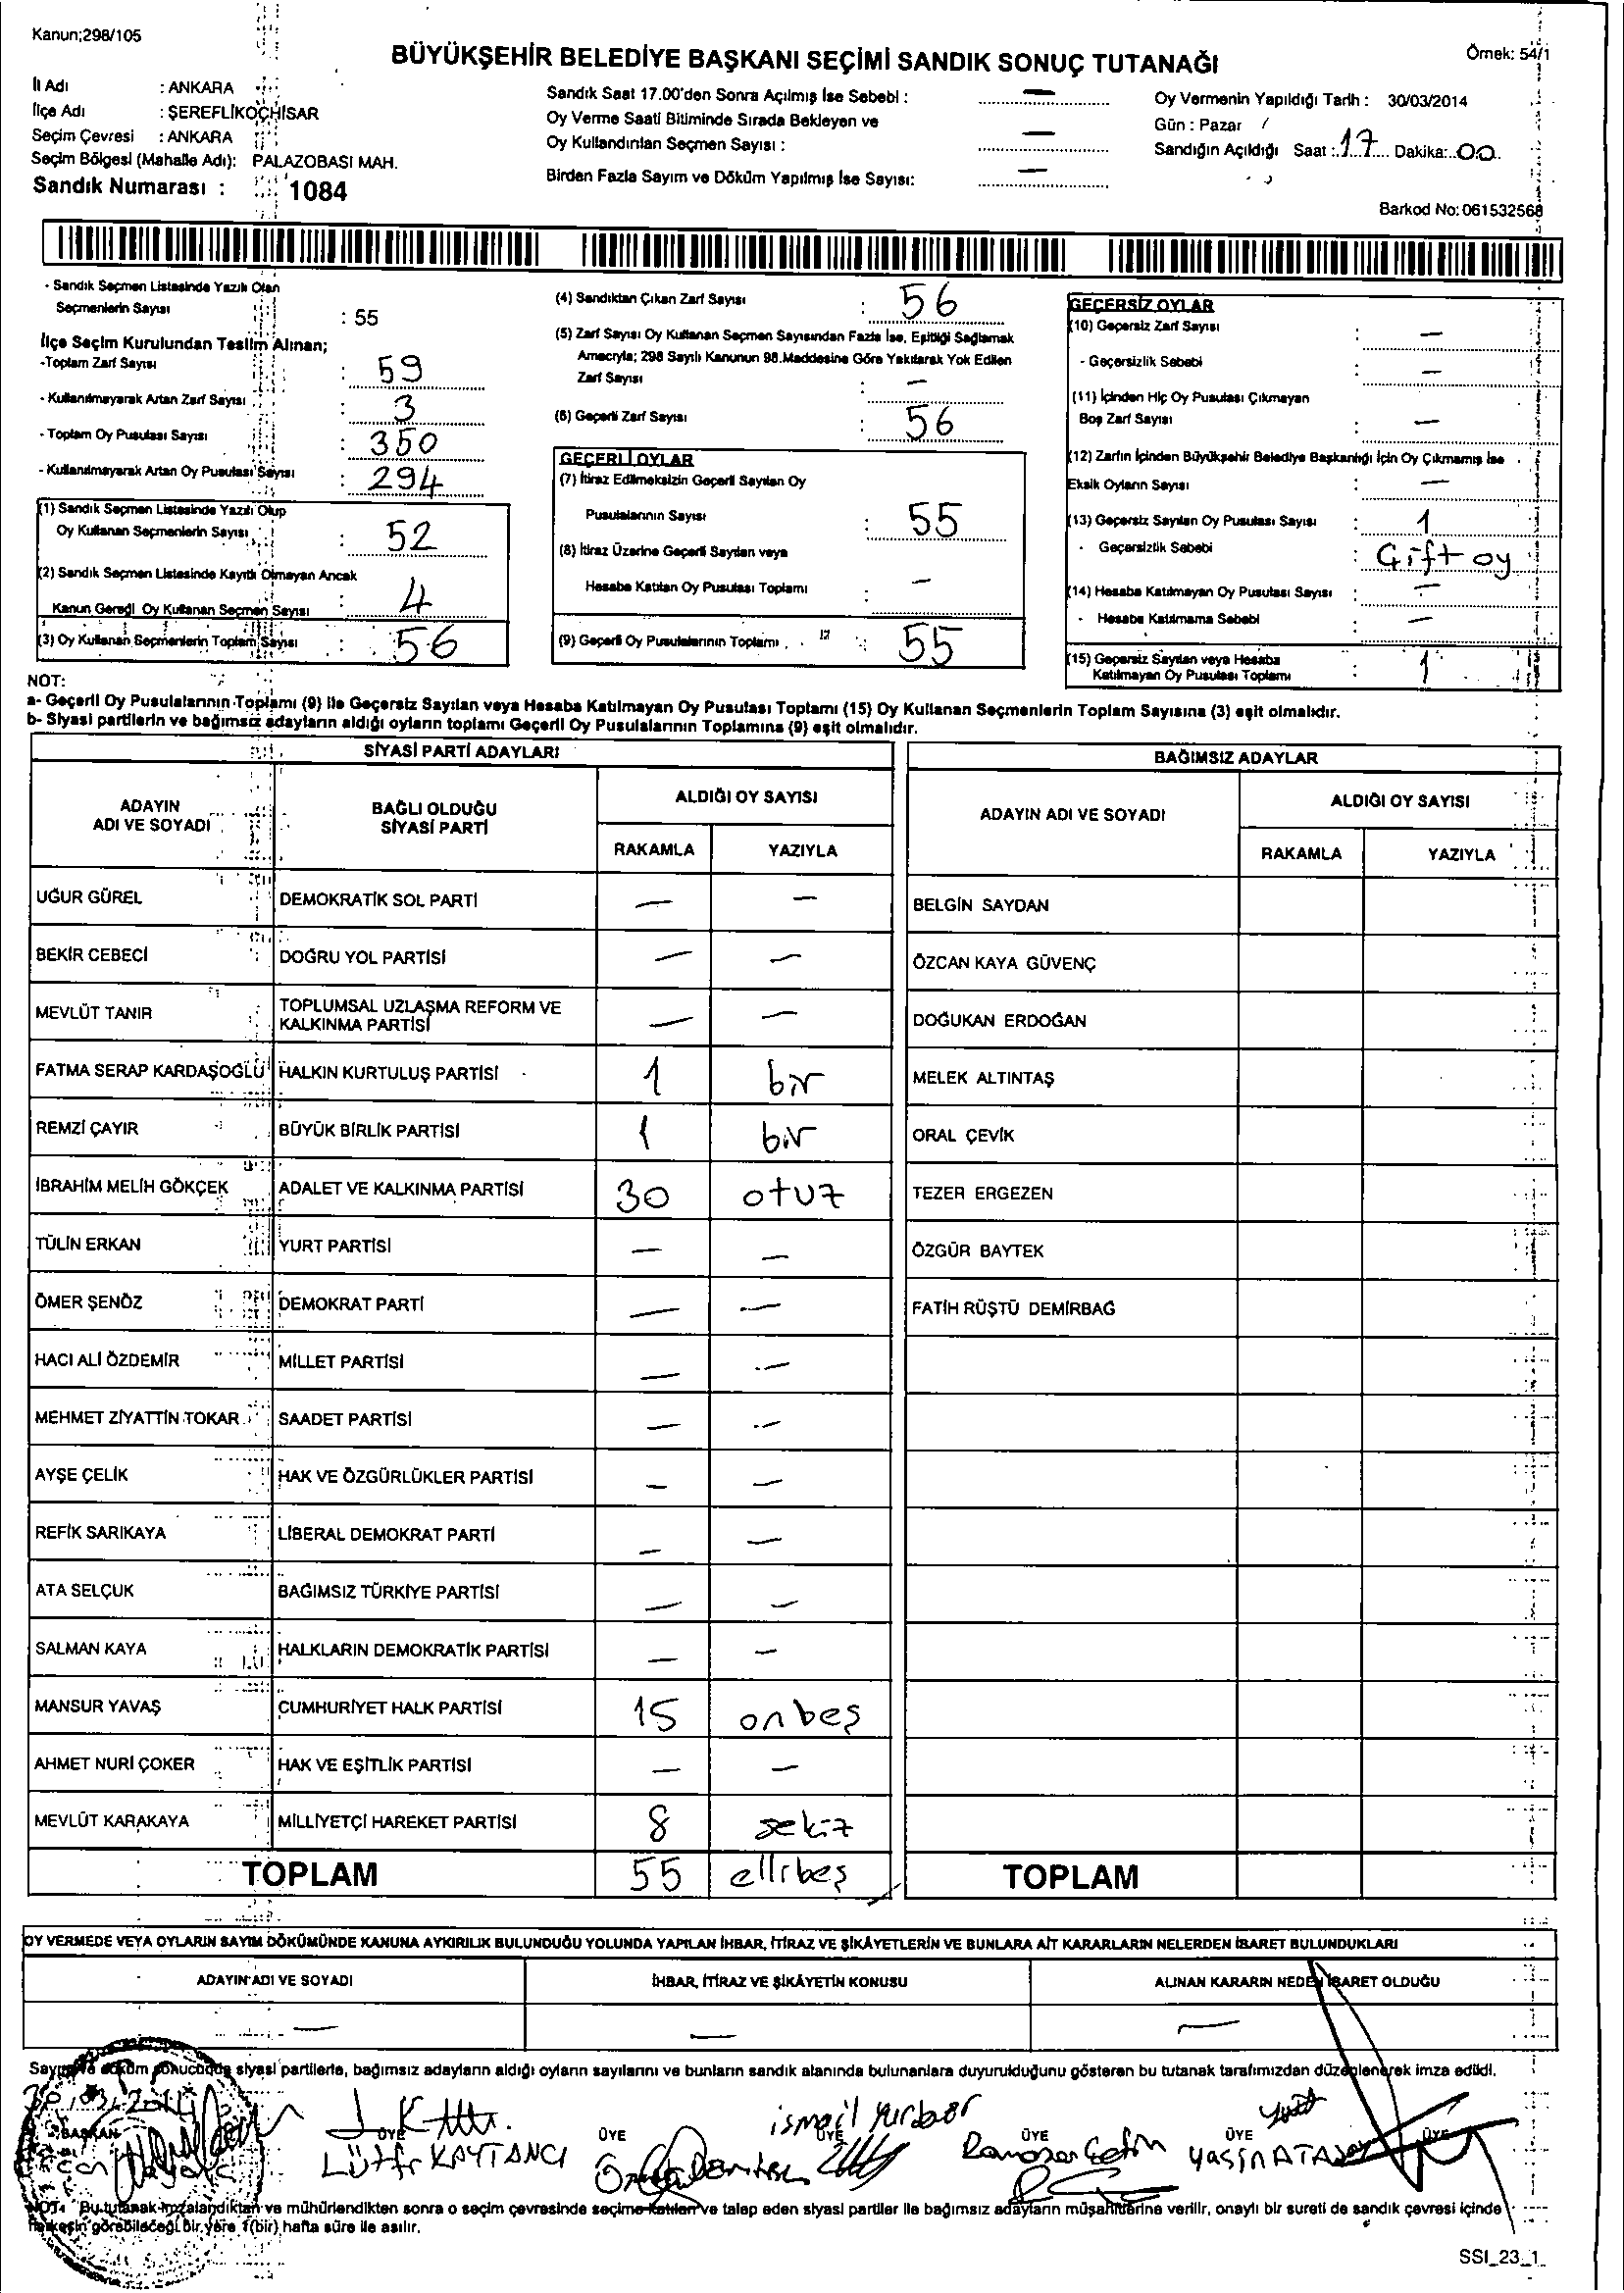 Kanun;298/105
BÜYÜKŞEHİR BELEDİYE BAŞKANI SEÇİMİ SANDIK SONUÇ TUTANAĞI
Örnek: 54/1
İl Adı : ANKARA
İlçe Adı : ŞEREFLİKOÇHİSAR
Seçim Çevresi : ANKARA
Seçim Bölgesi (Mahalle Adı): PALAZOBASI MAH.
Sandık Numarası : 1084
Sandık Saat 17.00'den Sonra Açılmış İse Sebebi : —
Oy Verme Saati Bitiminde Sırada Bekleyen ve
Oy Kullandırılan Seçmen Sayısı : —
Birden Fazla Sayım ve Döküm Yapılmış İse Sayısı: —
Oy Vermenin Yapıldığı Tarih : 30/03/2014
Gün : Pazar
Sandığın Açıldığı Saat : 17 Dakika: 00
Barkod No: 061532568
- Sandık Seçmen Listesinde Yazılı Olan
Seçmenlerin Sayısı : 55
İlçe Seçim Kurulundan Teslim Alınan;
-Toplam Zarf Sayısı : 59
- Kullanılmayarak Artan Zarf Sayısı : 3
- Toplam Oy Pusulası Sayısı : 350
- Kullanılmayarak Artan Oy Pusulası Sayısı : 294
(1) Sandık Seçmen Listesinde Yazılı Olup
Oy Kullanan Seçmenlerin Sayısı : 52
(2) Sandık Seçmen Listesinde Kayıtlı Olmayan Ancak
Kanun Gereği Oy Kullanan Seçmen Sayısı : 4
(3) Oy Kullanan Seçmenlerin Toplam Sayısı : 56
(4) Sandıktan Çıkan Zarf Sayısı : 56
(5) Zarf Sayısı Oy Kullanan Seçmen Sayısından Fazla İse, Eşitliği Sağlamak
Amacıyla; 298 Sayılı Kanunun 98.Maddesine Göre Yakılarak Yok Edilen
Zarf Sayısı : —
(6) Geçerli Zarf Sayısı : 56
GEÇERLİ OYLAR
(7) İtiraz Edilmeksizin Geçerli Sayılan Oy
Pusulalarının Sayısı : 55
(8) İtiraz Üzerine Geçerli Sayılan veya
Hesaba Katılan Oy Pusulası Toplamı : —
(9) Geçerli Oy Pusulalarının Toplamı : 55
GEÇERSİZ OYLAR
(10) Geçersiz Zarf Sayısı : —
- Geçersizlik Sebebi : —
(11) İçinden Hiç Oy Pusulası Çıkmayan
Boş Zarf Sayısı : —
(12) Zarfın İçinden Büyükşehir Belediye Başkanlığı İçin Oy Çıkmamış İse
Eksik Oyların Sayısı : —
(13) Geçersiz Sayılan Oy Pusulası Sayısı : 1
- Geçersizlik Sebebi : Çift oy
(14) Hesaba Katılmayan Oy Pusulası Sayısı : —
- Hesaba Katılmama Sebebi : —
(15) Geçersiz Sayılan veya Hesaba
Katılmayan Oy Pusulası Toplamı : 1
NOT:
a- Geçerli Oy Pusulalarının Toplamı (9) ile Geçersiz Sayılan veya Hesaba Katılmayan Oy Pusulası Toplamı (15) Oy Kullanan Seçmenlerin Toplam Sayısına (3) eşit olmalıdır.
b- Siyasi partilerin ve bağımsız adayların aldığı oyların toplamı Geçerli Oy Pusulalarının Toplamına (9) eşit olmalıdır.
SİYASİ PARTİ ADAYLARI
ADAYIN ADI VE SOYADI BAĞLI OLDUĞU SİYASİ PARTİ ALDIĞI OY SAYISI
RAKAMLA YAZIYLA
UĞUR GÜREL DEMOKRATİK SOL PARTİ — —
BEKİR CEBECİ DOĞRU YOL PARTİSİ — —
MEVLÜT TANIR TOPLUMSAL UZLAŞMA REFORM VE KALKINMA PARTİSİ — —
FATMA SERAP KARDAŞOĞLU HALKIN KURTULUŞ PARTİSİ 1 bir
REMZİ ÇAYIR BÜYÜK BİRLİK PARTİSİ 1 bir
İBRAHİM MELİH GÖKÇEK ADALET VE KALKINMA PARTİSİ 30 otuz
TÜLİN ERKAN YURT PARTİSİ — —
ÖMER ŞENÖZ DEMOKRAT PARTİ — —
HACI ALİ ÖZDEMİR MİLLET PARTİSİ — —
MEHMET ZİYATTİN TOKAR SAADET PARTİSİ — —
AYŞE ÇELİK HAK VE ÖZGÜRLÜKLER PARTİSİ — —
REFİK SARIKAYA LİBERAL DEMOKRAT PARTİ — —
ATA SELÇUK BAĞIMSIZ TÜRKİYE PARTİSİ — —
SALMAN KAYA HALKLARIN DEMOKRATİK PARTİSİ — —
MANSUR YAVAŞ CUMHURİYET HALK PARTİSİ 15 onbeş
AHMET NURİ ÇOKER HAK VE EŞİTLİK PARTİSİ — —
MEVLÜT KARAKAYA MİLLİYETÇİ HAREKET PARTİSİ 8 sekiz
TOPLAM 55 ellibeş
BAĞIMSIZ ADAYLAR
ADAYIN ADI VE SOYADI ALDIĞI OY SAYISI
RAKAMLA YAZIYLA
BELGİN SAYDAN
ÖZCAN KAYA GÜVENÇ
DOĞUKAN ERDOĞAN
MELEK ALTINTAŞ
ORAL ÇEVİK
TEZER ERGEZEN
ÖZGÜR BAYTEK
FATİH RÜŞTÜ DEMİRBAĞ
TOPLAM
OY VERMEDE VEYA OYLARIN SAYIM DÖKÜMÜNDE KANUNA AYKIRILIK BULUNDUĞU YOLUNDA YAPILAN İHBAR, İTİRAZ VE ŞİKÂYETLERİN VE BUNLARA AİT KARARLARIN NELERDEN İBARET BULUNDUKLARI
ADAYIN ADI VE SOYADI İHBAR, İTİRAZ VE ŞİKÂYETİN KONUSU ALINAN KARARIN NEDEN İBARET OLDUĞU
— — —
Sayım ve döküm sonucunda siyasi partilerle, bağımsız adayların aldığı oyların sayılarını ve bunların sandık alanında bulunanlara duyurulduğunu gösteren bu tutanak tarafımızdan düzenlenerek imza edildi.
30/03/2014
BAŞKAN ÜYE ÜYE ÜYE ÜYE ÜYE ÜYE
Lütfi KAYTANCI
ismail
Ramazan Çetin
Yasin ATA
NOT: Bu tutanak imzalandıktan ve mühürlendikten sonra o seçim çevresinde seçime katılan ve talep eden siyasi partiler ile bağımsız adayların müşahitlerine verilir, onaylı bir sureti de sandık çevresi içinde
herkesin görebileceği bir yere 1(bir) hafta süre ile asılır.
SSI_23_1_